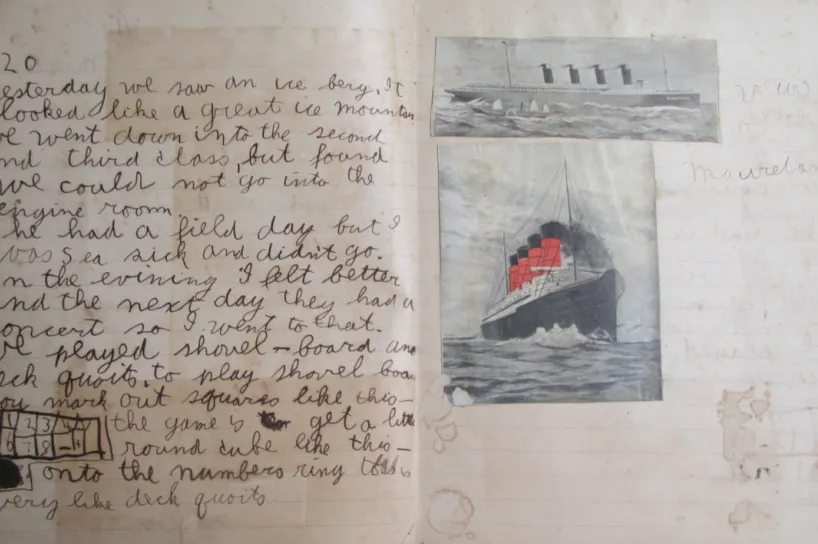 20
esterday we saw an ice berg, It
looked like a great ice mountain
we went down into the second
nd third class, but found
we could not go into the
engine room.
he had a field day but I
was sea sick and didn't go.
n the evining I felt better
nd the next day they had a
oncert so I went to that.
we played shovel-board and
eck quoits, to play shovel boar
ou mark out squares like this-
1 2 3 4 the game is get a little
round cube like this-
onto the numbers ring is
very like deck quoits
Mauretan